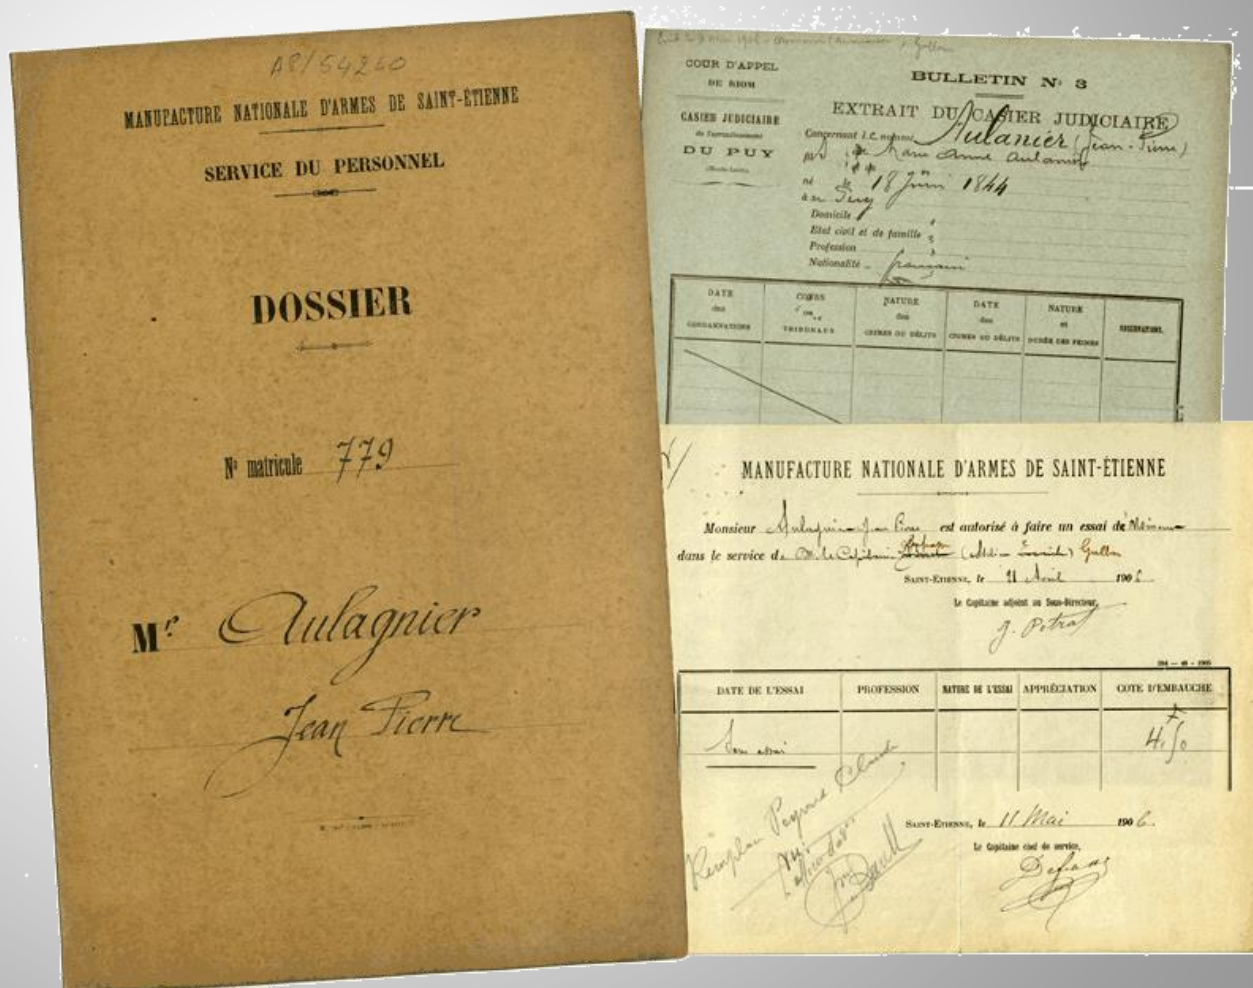 A8/54240
MANUFACTURE NATIONALE D'ARMES DE SAINT-ÉTIENNE
SERVICE DU PERSONNEL
DOSSIER
N° matricule 779
Mr Aulagnier
Jean Pierre
COUR D'APPEL
DE RIOM
CASIER JUDICIAIRE
de l'arrondissement
DU PUY
(Haute-Loire)
BULLETIN N° 3
EXTRAIT DU CASIER JUDICIAIRE
Concernant le nommé Aulanier (Jean-Pierre)
Marie Anne Aulanier
né le 18 Juin 1844
à
Domicile
Etat civil et de famille
Profession
Nationalité français
DATE des CONDAMNATIONS
COURS ou TRIBUNAUX
NATURE des CRIMES OU DÉLITS
DATE des CRIMES OU DÉLITS
NATURE et DURÉE DES PEINES
OBSERVATIONS.
MANUFACTURE NATIONALE D'ARMES DE SAINT-ÉTIENNE
Monsieur Aulagnier Jean Pierre est autorisé à faire un essai de
dans le service de M. le Capitaine
SAINT-ETIENNE, le 21 Avril 190
Le Capitaine adjoint au Sous-Directeur,
J. Potrat
DATE DE L'ESSAI
PROFESSION
NATURE DE L'ESSAI
APPRÉCIATION
COTE D'EMBAUCHE
Sans essai
4,50
Peyrard Claude
SAINT-ETIENNE, le 11 Mai 1906
Le Capitaine chef de service,